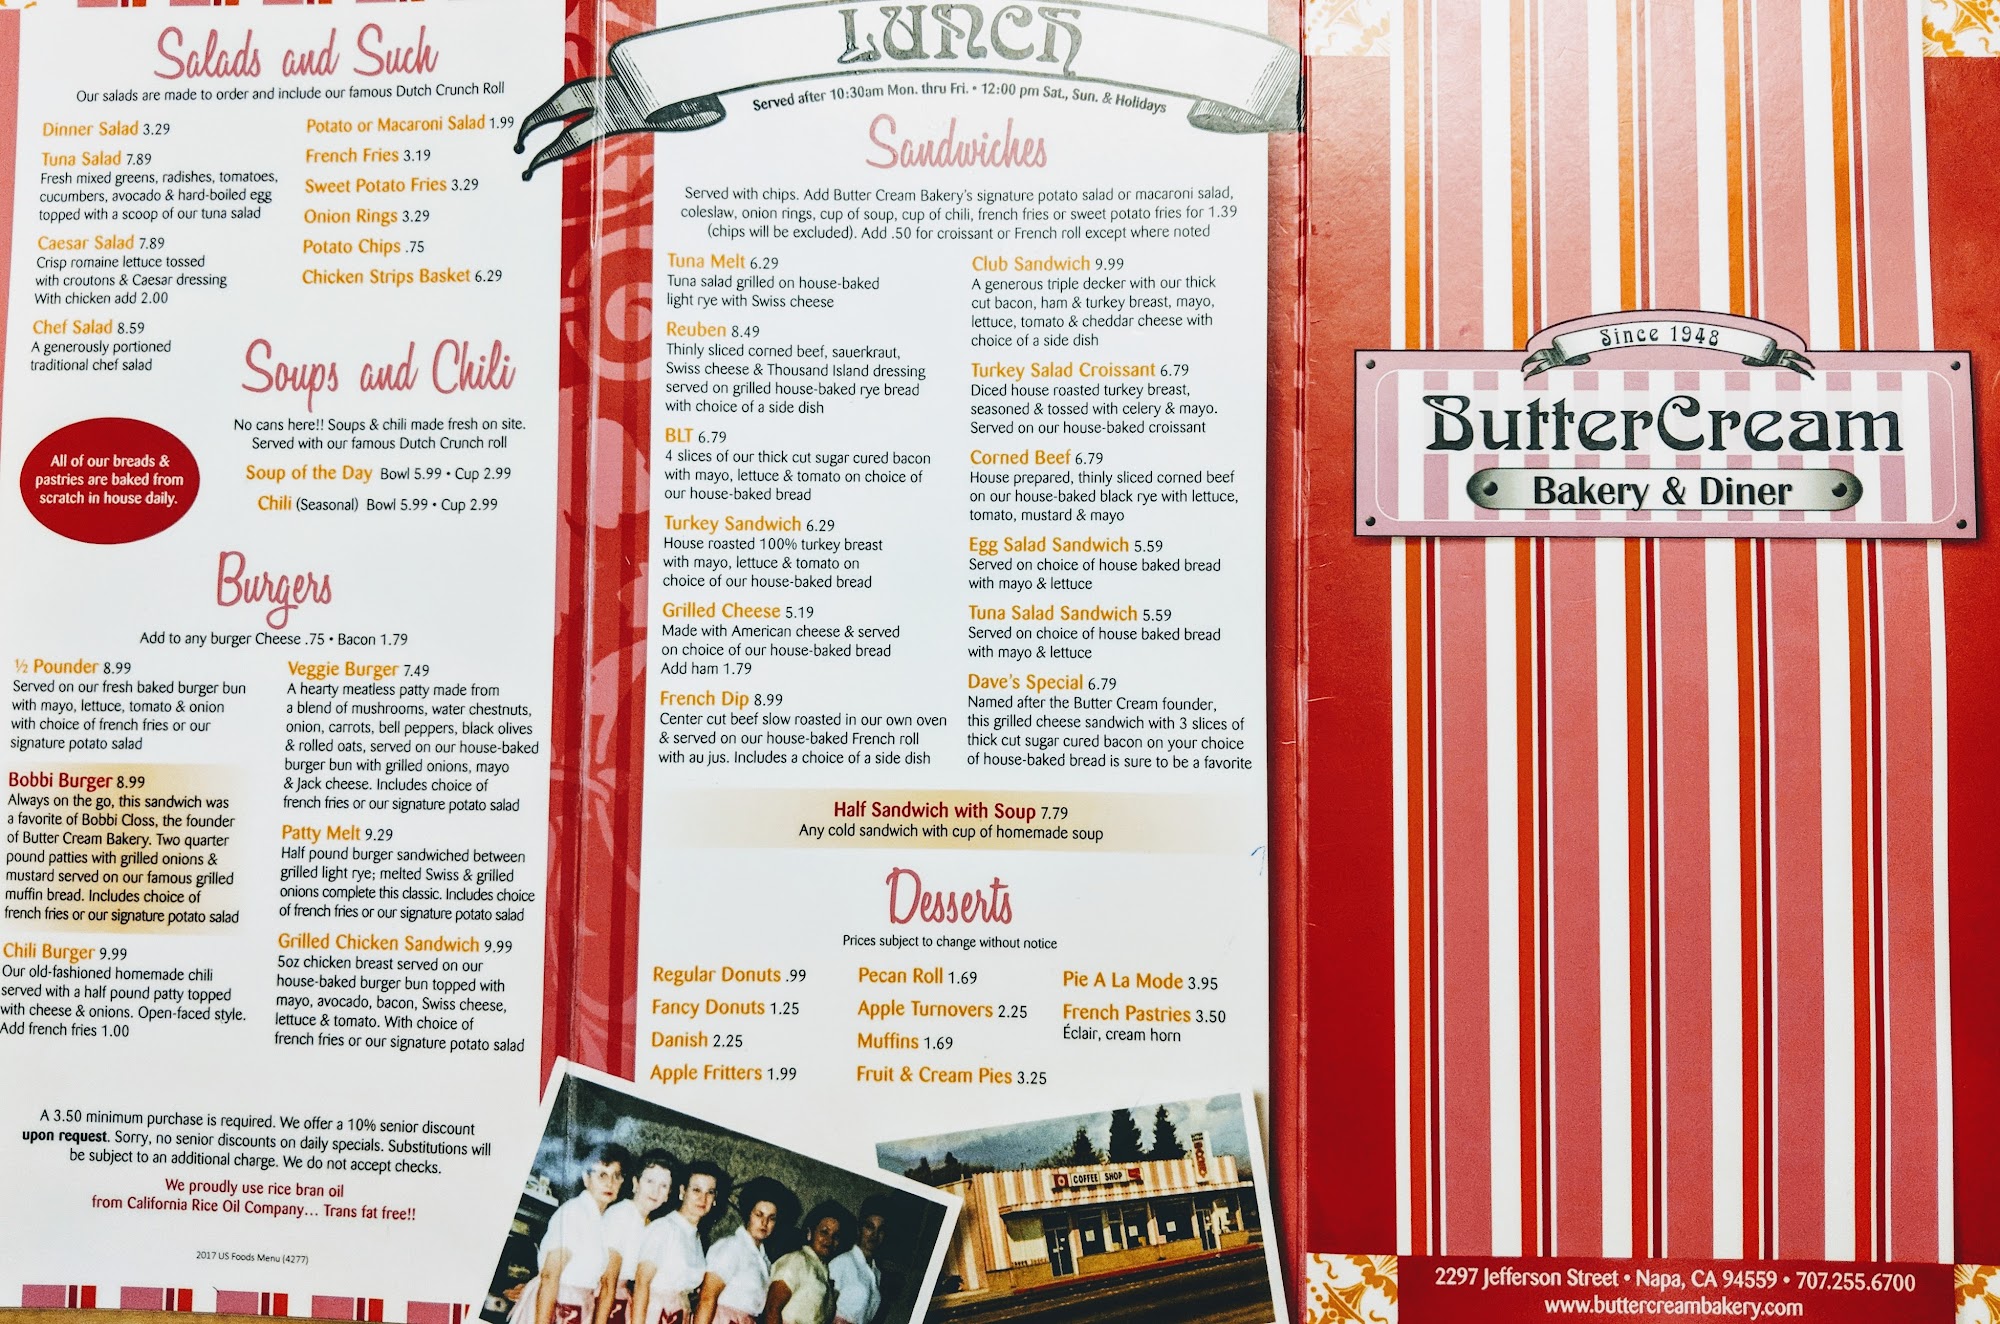 Salads and Such
Our salads are made to order and include our famous Dutch Crunch Roll
Dinner Salad 3.29
Tuna Salad 7.89
Fresh mixed greens, radishes, tomatoes,
cucumbers, avocado & hard-boiled egg
topped with a scoop of our tuna salad
Caesar Salad 7.89
Crisp romaine lettuce tossed
with croutons & Caesar dressing
With chicken add 2.00
Chef Salad 8.59
A generously portioned
traditional chef salad
Potato or Macaroni Salad 1.99
French Fries 3.19
Sweet Potato Fries 3.29
Onion Rings 3.29
Potato Chips .75
Chicken Strips Basket 6.29
All of our breads &
pastries are baked from
scratch in house daily.
Soups and Chili
No cans here!! Soups & chili made fresh on site.
Served with our famous Dutch Crunch roll
Soup of the Day Bowl 5.99 • Cup 2.99
Chili (Seasonal) Bowl 5.99 • Cup 2.99
Burgers
Add to any burger Cheese .75 • Bacon 1.79
½ Pounder 8.99
Served on our fresh baked burger bun
with mayo, lettuce, tomato & onion
with choice of french fries or our
signature potato salad
Bobbi Burger 8.99
Always on the go, this sandwich was
a favorite of Bobbi Closs, the founder
of Butter Cream Bakery. Two quarter
pound patties with grilled onions &
mustard served on our famous grilled
muffin bread. Includes choice of
french fries or our signature potato salad
Chili Burger 9.99
Our old-fashioned homemade chili
served with a half pound patty topped
with cheese & onions. Open-faced style.
Add french fries 1.00
Veggie Burger 7.49
A hearty meatless patty made from
a blend of mushrooms, water chestnuts,
onion, carrots, bell peppers, black olives
& rolled oats, served on our house-baked
burger bun with grilled onions, mayo
& Jack cheese. Includes choice of
french fries or our signature potato salad
Patty Melt 9.29
Half pound burger sandwiched between
grilled light rye; melted Swiss & grilled
onions complete this classic. Includes choice
of french fries or our signature potato salad
Grilled Chicken Sandwich 9.99
5oz chicken breast served on our
house-baked burger bun topped with
mayo, avocado, bacon, Swiss cheese,
lettuce & tomato. With choice of
french fries or our signature potato salad
A 3.50 minimum purchase is required. We offer a 10% senior discount
upon request. Sorry, no senior discounts on daily specials. Substitutions will
be subject to an additional charge. We do not accept checks.
We proudly use rice bran oil
from California Rice Oil Company... Trans fat free!!
2017 US Foods Menu (4277)
LUNCH
Served after 10:30am Mon. thru Fri. • 12:00 pm Sat., Sun. & Holidays
Sandwiches
Served with chips. Add Butter Cream Bakery's signature potato salad or macaroni salad,
coleslaw, onion rings, cup of soup, cup of chili, french fries or sweet potato fries for 1.39
(chips will be excluded). Add .50 for croissant or French roll except where noted
Tuna Melt 6.29
Tuna salad grilled on house-baked
light rye with Swiss cheese
Reuben 8.49
Thinly sliced corned beef, sauerkraut,
Swiss cheese & Thousand Island dressing
served on grilled house-baked rye bread
with choice of a side dish
BLT 6.79
4 slices of our thick cut sugar cured bacon
with mayo, lettuce & tomato on choice of
our house-baked bread
Turkey Sandwich 6.29
House roasted 100% turkey breast
with mayo, lettuce & tomato on
choice of our house-baked bread
Grilled Cheese 5.19
Made with American cheese & served
on choice of our house-baked bread
Add ham 1.79
French Dip 8.99
Center cut beef slow roasted in our own oven
& served on our house-baked French roll
with au jus. Includes a choice of a side dish
Club Sandwich 9.99
A generous triple decker with our thick
cut bacon, ham & turkey breast, mayo,
lettuce, tomato & cheddar cheese with
choice of a side dish
Turkey Salad Croissant 6.79
Diced house roasted turkey breast,
seasoned & tossed with celery & mayo.
Served on our house-baked croissant
Corned Beef 6.79
House prepared, thinly sliced corned beef
on our house-baked black rye with lettuce,
tomato, mustard & mayo
Egg Salad Sandwich 5.59
Served on choice of house baked bread
with mayo & lettuce
Tuna Salad Sandwich 5.59
Served on choice of house baked bread
with mayo & lettuce
Dave's Special 6.79
Named after the Butter Cream founder,
this grilled cheese sandwich with 3 slices of
thick cut sugar cured bacon on your choice
of house-baked bread is sure to be a favorite
Half Sandwich with Soup 7.79
Any cold sandwich with cup of homemade soup
Desserts
Prices subject to change without notice
Regular Donuts .99
Fancy Donuts 1.25
Danish 2.25
Apple Fritters 1.99
Pecan Roll 1.69
Apple Turnovers 2.25
Muffins 1.69
Fruit & Cream Pies 3.25
Pie A La Mode 3.95
French Pastries 3.50
Éclair, cream horn
COFFEE SHOP
Since 1948
ButterCream
Bakery & Diner
2297 Jefferson Street • Napa, CA 94559 • 707.255.6700
www.buttercreambakery.com